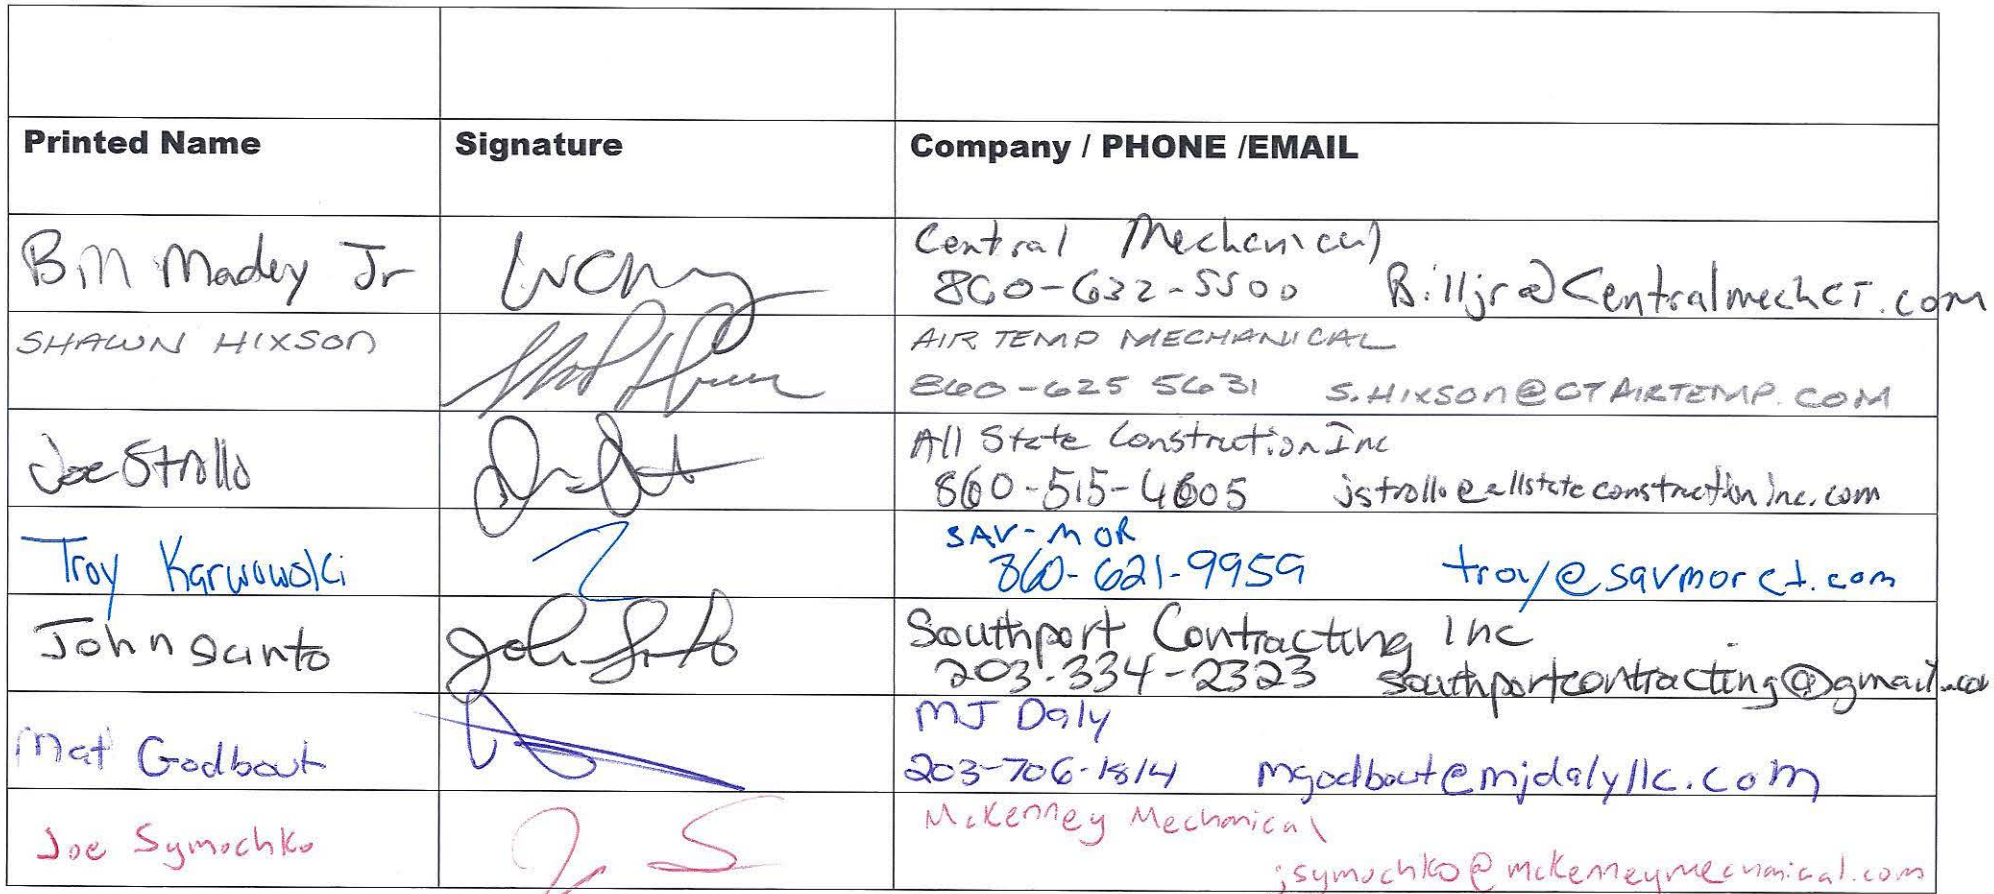 Printed Name Signature Company / PHONE /EMAIL
Bill Madey Jr
Central Mechanical
860-632-5500 Billjr@Centralmechct.com
SHAWN HIXSON
AIR TEMP MECHANICAL
860-625 5631 S.HIXSON@CTAIRTEMP.COM
Joe Strollo
All State Construction Inc
860-515-4605 jstrollo@allstateconstructioninc.com
Troy Karwowski
SAV-MOR
860-621-9959 troy@savmorct.com
John Santo John Santo
Southport Contracting Inc
203-334-2323 southportcontracting@gmail.com
Mat Godbout
MJ Daly
203-706-1814 mgodbout@mjdalyllc.com
Joe Symochko
McKenney Mechanical
jsymochko@mckenneymechanical.com